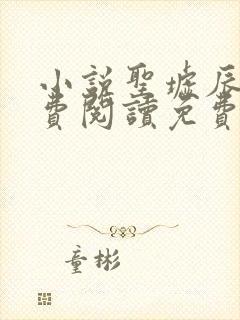 小説聖墟辰
費閱讀免費
童彬